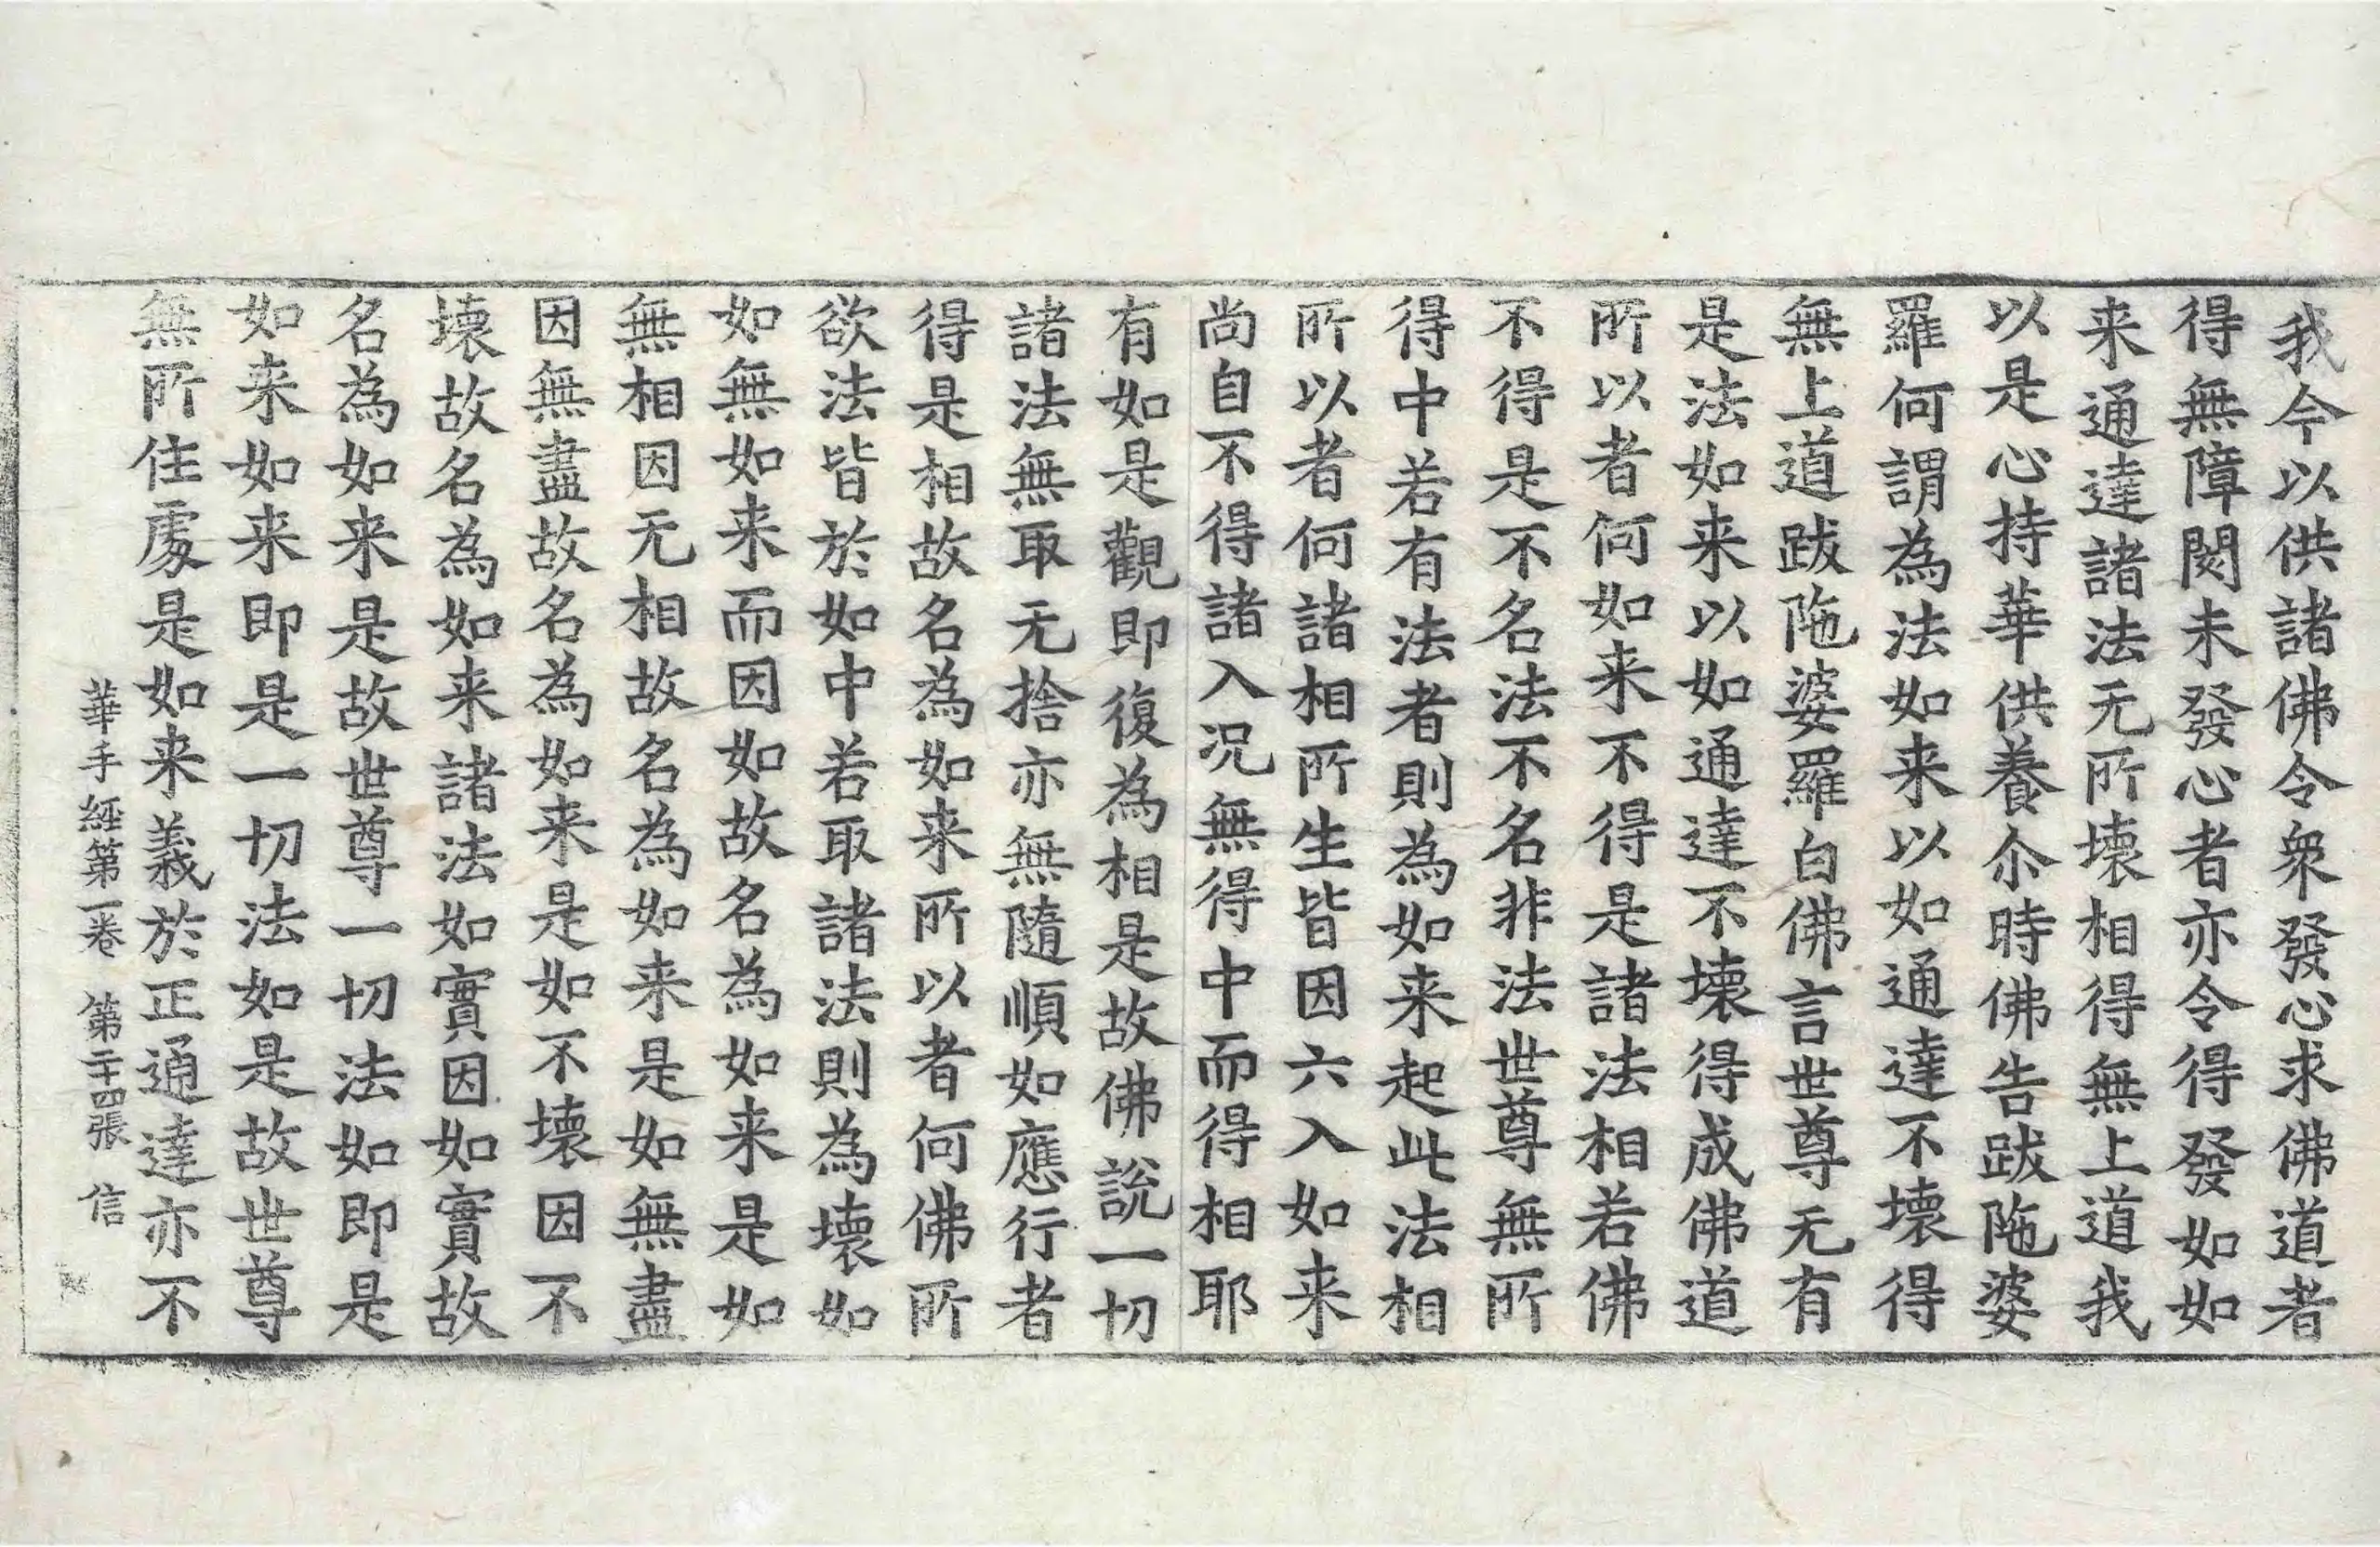 我今以供諸佛令衆發心求佛道者
得無障閡未發心者亦令得發如如
来通達諸法无所壞相得無上道我
以是心持華供養尒時佛告跋陁婆
羅何謂為法如来以如通達不壞得
無上道跋陁婆羅白佛言世尊无有
是法如来以如通達不壞得成佛道
所以者何如来不得是諸法相若佛
不得是不名法不名非法世尊無所
得中若有法者則為如来起此法相
所以者何諸相所生皆因六入如来
尚自不得諸入况無得中而得相耶
有如是觀即復為相是故佛說一切
諸法無取无捨亦無隨順如應行者
得是相故名為如来所以者何佛所
欲法皆於如中若取諸法則為壞如
如無如来而因如故名為如来是如
無相因无相故名為如来是如無盡
因無盡故名為如来是如不壞因不
壞故名為如来諸法如實因如實故
名為如来是故世尊一切法如即是
如来如来即是一切法如是故世尊
無所住處是如来義於正通達亦不
華手經第一卷 第二十四張 信